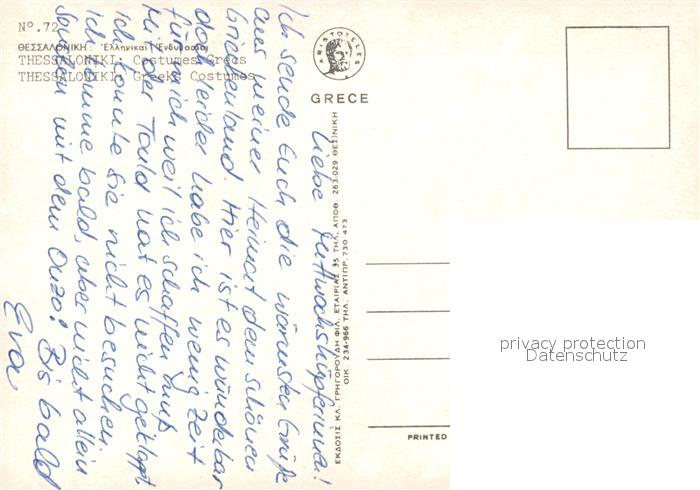 Nº. 72
ΘΕΣΣΑΛΟΝΙΚΗ: Ἑλληνικαί Ἐνδυμασίαι
THESSALONIKI: Costumes Grecs
THESSALONIKI: Greeks Costumes
ARISTOTELES
GRECE
Liebe Mittwochshüpferinnen!
Ich sende Euch die wärmsten Grüße
aus meiner Heimat dem schönen
Griechenland. Hier ist es wunderbar
doch leider habe ich wenig Zeit
für mich weil ich schaffen muß
Mit der Toula hat es nicht geklappt,
ich konnte sie nicht besuchen.
Ich komme bald, aber nicht allein
sondern mit dem Ouzo! Bis bald
Eva
ΕΚΔΟΣΙΣ ΚΛ. ΓΡΗΓΟΡΟΥΔΗ ΦΙΛ. ΕΤΑΙΡΙΑΣ 35 ΤΗΛ. ΑΠΟΘ. 263-029 ΘΕΣ)ΝΙΚΗ
ΟΙΚ. 234-966 ΤΗΛ. ΑΝΤΙΠΡ. 730 473
PRINTED
privacy protection
Datenschutz